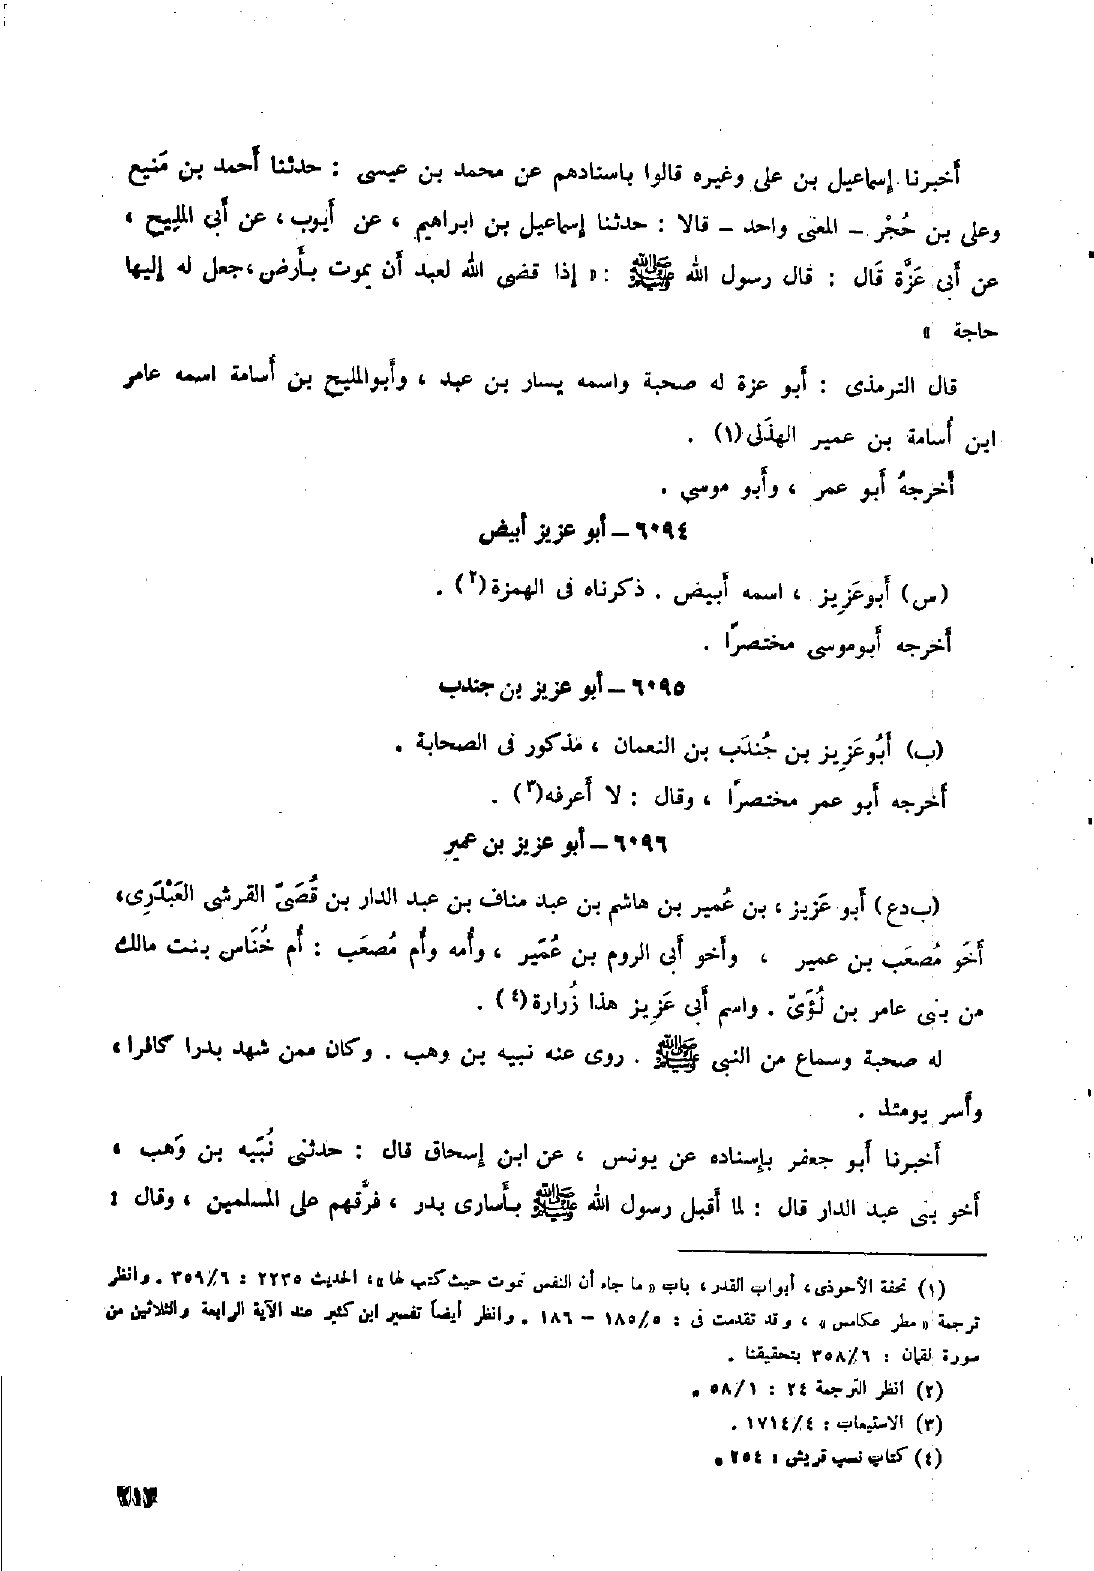 أخبرنا إسماعيل بن على وغيره قالوا باسنادهم عن محمد بن عيسى : حدثنا أحمد بن مَنيع
وعلى بن حُجْر – المعنى واحد – قالا : حدثنا إسماعيل بن ابراهيم ، عن أيوب ، عن أبى المليح ،
عن أبى عَزَّة قَال : قال رسول الله ﷺ : « إذا قضى الله لعبد أن يموت بأرض ، جعل له إليها
حاجة »
قال الترمذى : أبو عزة له صحبة واسمه يسار بن عبد ، وأبوالمليح بن أسامة اسمه عامر
ابن أُسامة بن عمير الهذَلى(١) .
أخرجهُ أبو عمر ، وأبو موسى .
٦٠٩٤ – أبو عزيز أبيض
(س) أبوعَزِيز ، اسمه أبيض . ذكرناه فى الهمزة(٢) .
أخرجه أبوموسى مختصرًا .
٦٠٩٥ – أبو عزيز بن جندب
(ب) أبُوعَزِيز بن جُندَب بن النعمان ، مذكور فى الصحابة .
أخرجه أبو عمر مختصرًا ، وقال : لا أعرفه(٣) .
٦٠٩٦ – أبو عزيز بن عمير
(ب‌دع) أبو عَزيز ، بن عُمير بن هاشم بن عبد مناف بن عبد الدار بن قُصَىّ القرشى العَبْدَرِى،
أخَو مُصعَب بن عمير ، وأخو أبى الروم بن عُمَير ، وأُمه وأُم مُصعَب : أُم خُنَاس بنت مالك
من بنى عامر بن لُؤَىّ . واسم أبى عَزِيز هذا زُرارة(٤) .
له صحبة وسماع من النبى ﷺ . روى عنه نبيه بن وهب . وكان ممن شهد بدرا كافرا ،
وأسر يومئذ .
أخبرنا أبو جعفر بإسناده عن يونس ، عن ابن إسحاق قال : حدثنى نُبَيه بن وَهب ،
أخو بنى عبد الدار قال : لما أقبل رسول الله ﷺ بأسارى بدر ، فرَّقهم على المسلمين ، وقال :
(١) تحفة الأحوذى ، أبواب القدر ، باب « ما جاء أن النفس تموت حيث كتب لها » ، الحديث ٢٢٣٥ : ٣٥٩/٦ . وانظر
ترجمة « مطر عكامس » ، وقد تقدمت فى : ١٨٥/٥ – ١٨٦ . وانظر أيضاً تفسير ابن كثير عند الآية الرابعة والثلاثين من
سورة لقمان : ٣٥٨/٦ بتحقيقنا .
(٢) انظر الترجمة ٢٤ : ٥٨/١ .
(٣) الاستيعاب : ١٧١٤/٤ .
(٤) كتاب نسب قريش : ٢٥٤ .
٢١٣